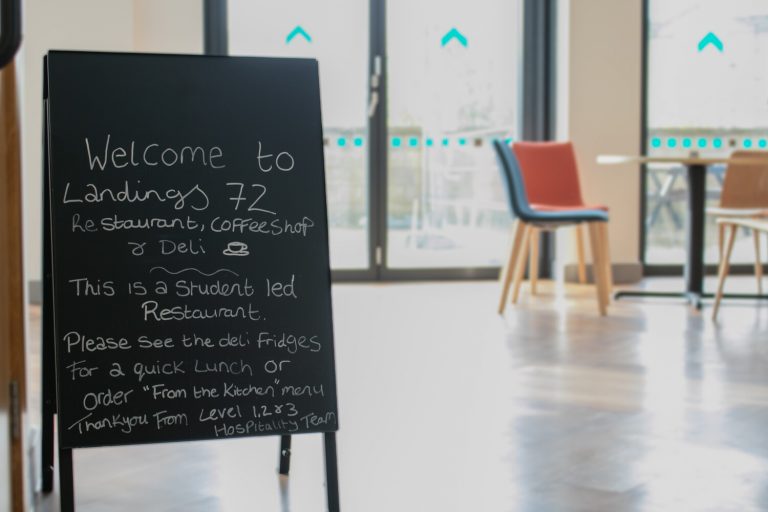 Welcome to
Landings 72
Restaurant, Coffee Shop
& Deli
This is a student led
Restaurant.
Please see the deli fridges
for a quick Lunch or
order "From the Kitchen" menu
Thankyou From Level 1,2 & 3
Hospitality Team